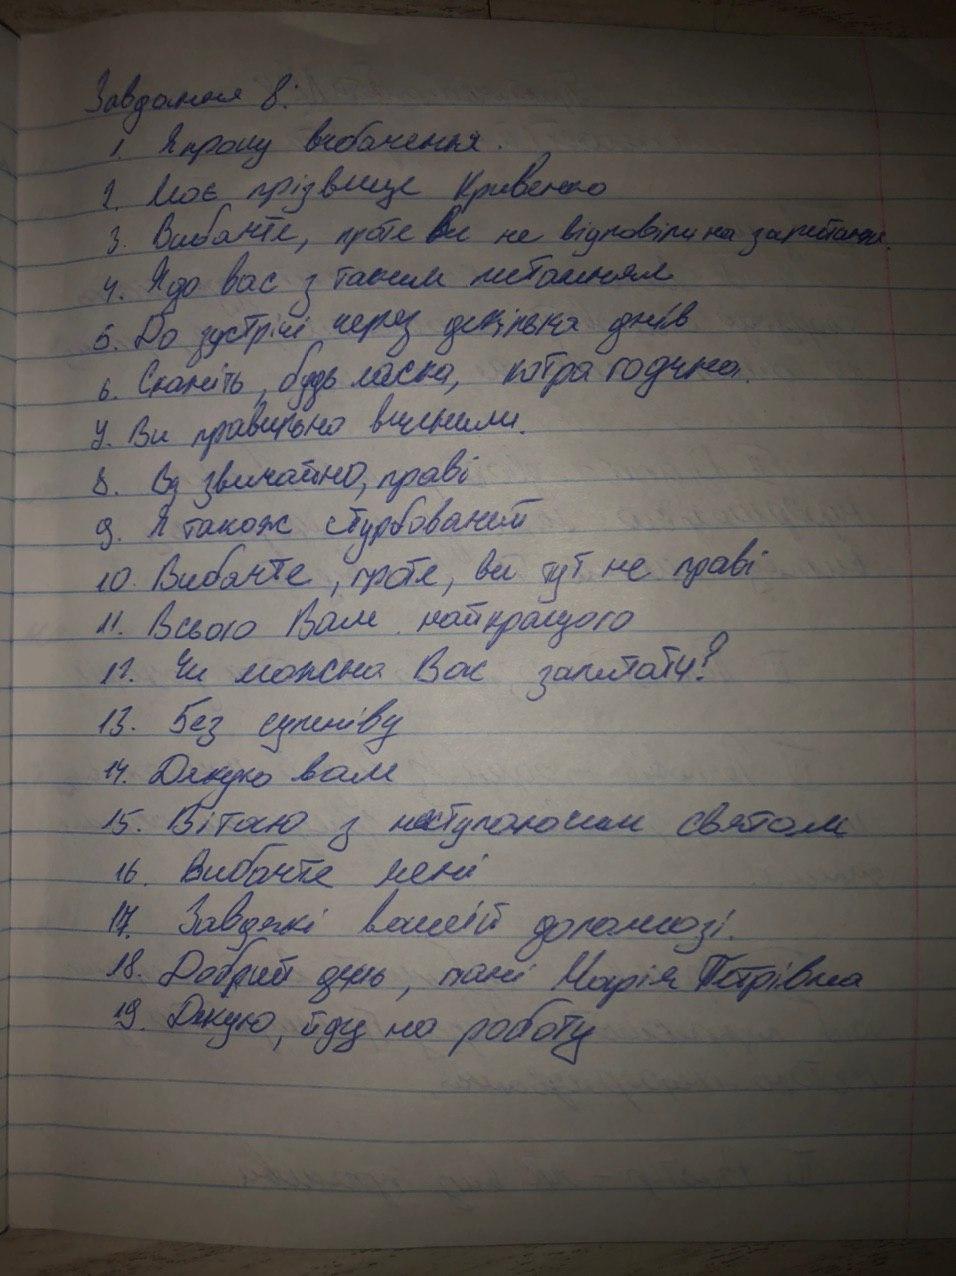 Завдання 8:
1. Я прошу вибачення.
2. Моє прізвище Кривенко
3. Вибачте, проте Ви не відповіли на запитання.
4. Я до вас з таким питанням
5. До зустрічі через декілька днів
6. Скажіть, будь ласка, котра година.
7. Ви правильно вчинили.
8. Ви звичайно, праві
9. Я також стурбований
10. Вибачте, проте, ви тут не праві
11. Всього Вам найкращого
12. Чи можна Вас запитати?
13. Без сумніву
14. Дякую вам
15. Вітаю з наступаючим святом
16. Вибачте мені
17. Завдяки вашій допомозі.
18. Добрий день, пані Марія Петрівна
19. Дякую, йду на роботу